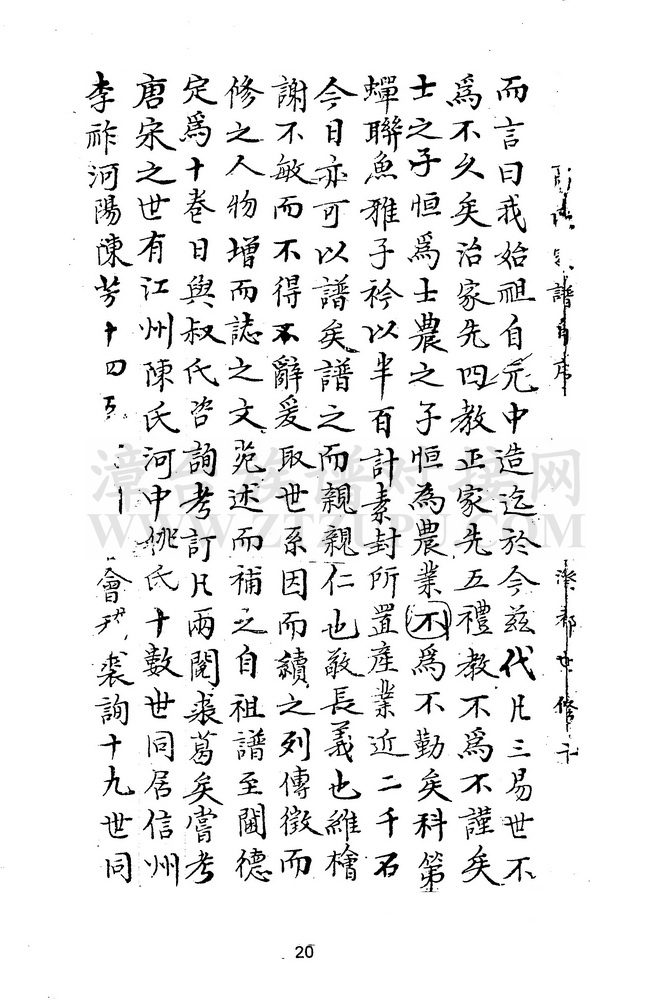 譜自序
而言曰我始祖自元中造迄於今茲代凡三易世不
爲不久矣治家先四教正家先五禮教不爲不謹矣
士之子恒爲士農之子恒為農業不爲不勤矣科第
蟬聯魚雅子衿以半百計素封所置產業近二千石
今日亦可以譜矣譜之而親親仁也敬長義也維檜
謝不敏而不得不辭爰取世系因而續之列傳徵而
修之人物增而誌之文苑述而補之自祖譜至閫德
定爲十卷日與叔氏咨詢考訂凡兩閱裘葛矣嘗考
唐宋之世有江州陳氏河中姚氏十數世同居信州
李祚河陽陳芳十四 會 裘詢十九世同
漳台族谱对接网
WWW.ZTZUPU.COM
20